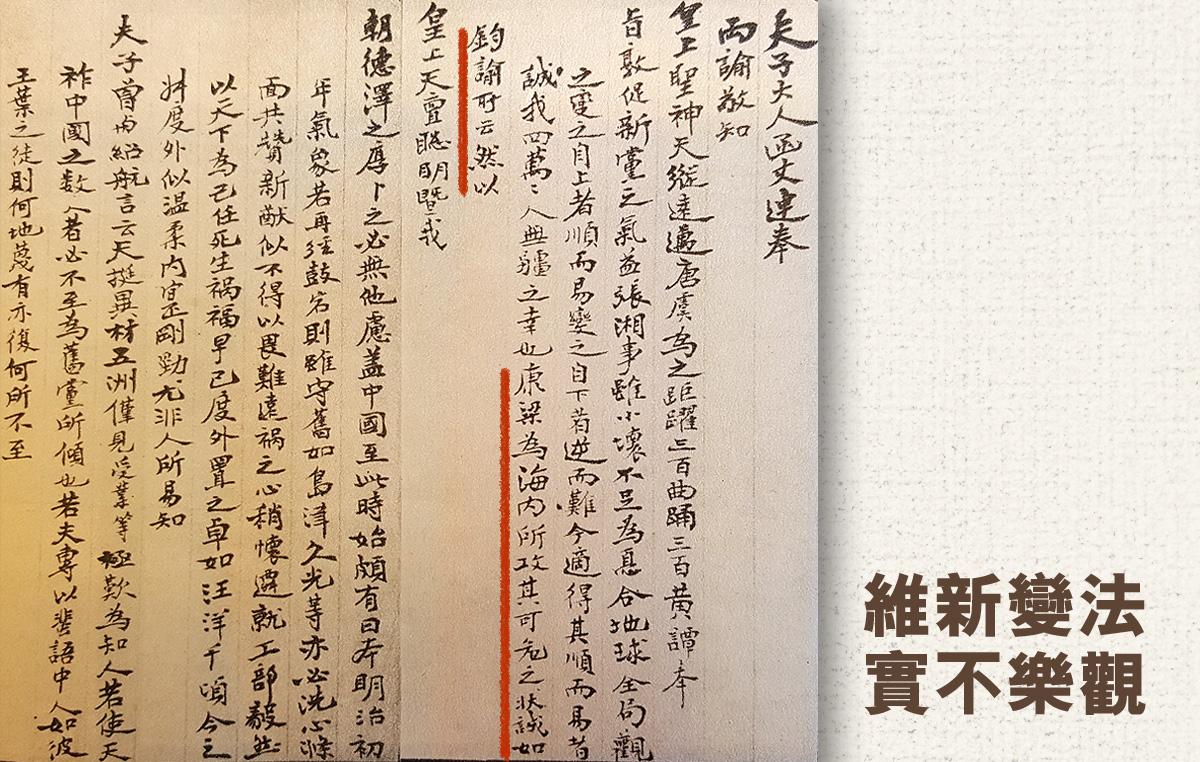 夫子大人函丈連奉
兩諭敬知
皇上聖神天縱遠邁唐虞為之距躍三百曲踊三百黃譚奉
旨敦促新黨之氣益張湘事雖小壞不足為患合地球全局觀
之變之自上者順而易變之自下者逆而難今適得其順而易者
誠我四萬萬人無疆之幸也康梁為海內所攻其可危之狀誠如
鈞諭所云然以
皇上天亶聰明暨我
朝德澤之厚卜之必無他慮蓋中國至此時始頗有日本明治初
年氣象若再經鼓宕則雖守舊如島津久光等亦必洗心滌
面共贊新猷似不得以畏難遠禍之心稍懷遷就工部毅然
以天下為己任死生禍福早已度外置之卓如汪洋千頃令之
斛度外似溫柔內寔剛勁尤非人所易知
夫子曾與紹航言云天挺異材五洲僅見受業等極歎為知人若使天
祚中國之數人者必不至為舊黨所傾也若夫專以蜚語中人如波
王葉之徒則何地蔑有亦復何所不至
維新變法
實不樂觀